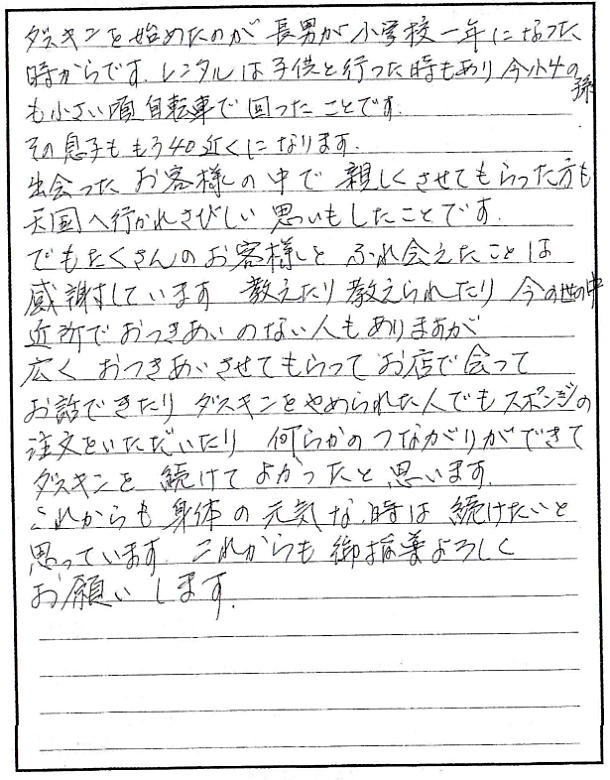 ダスキンを始めたのが 長男が小学校一年になった
時からです. レンタルは子供と行った時もあり 今小4の孫
も小さい頃 自転車で回ったことです.
その息子ももう40近くになります.
出会った お客様の中で 親しくさせてもらった方も
天国へ行かれさびしい 思いもしたことです.
でもたくさんのお客様と ふれ会えたことは
感謝しています 教えたり教えられたり 今の世の中
近所でおつきあいのない人もありますが
広く おつきあいさせてもらって お店で会って
お話できたり ダスキンをやめられた人でもスポンジの
注文をいただいたり 何らかのつながりができて
ダスキンを 続けてよかったと思います.
これからも身体の元気な 時は 続けたいと
思っています これからも御指導よろしく
お願いします.